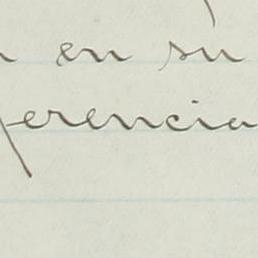 en su
erencia